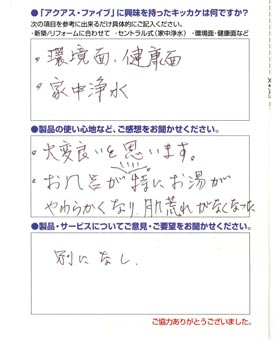 ●「アクアス・ファイブ」に興味を持ったキッカケは何ですか?
次の項目を参考に出来るだけ具体的にご記入ください。
・新築/リフォームに合わせて ・セントラル式(家中浄水) ・環境面・健康面など
・環境面、健康面
・家中浄水
●製品の使い心地など、ご感想をお聞かせください。
・大変良いと思います。
・お風呂が特にお湯が
やわらかくなり、肌荒れがなくなった
●製品・サービスについてご意見・ご要望をお聞かせください。
別になし.
ご協力ありがとうございました。